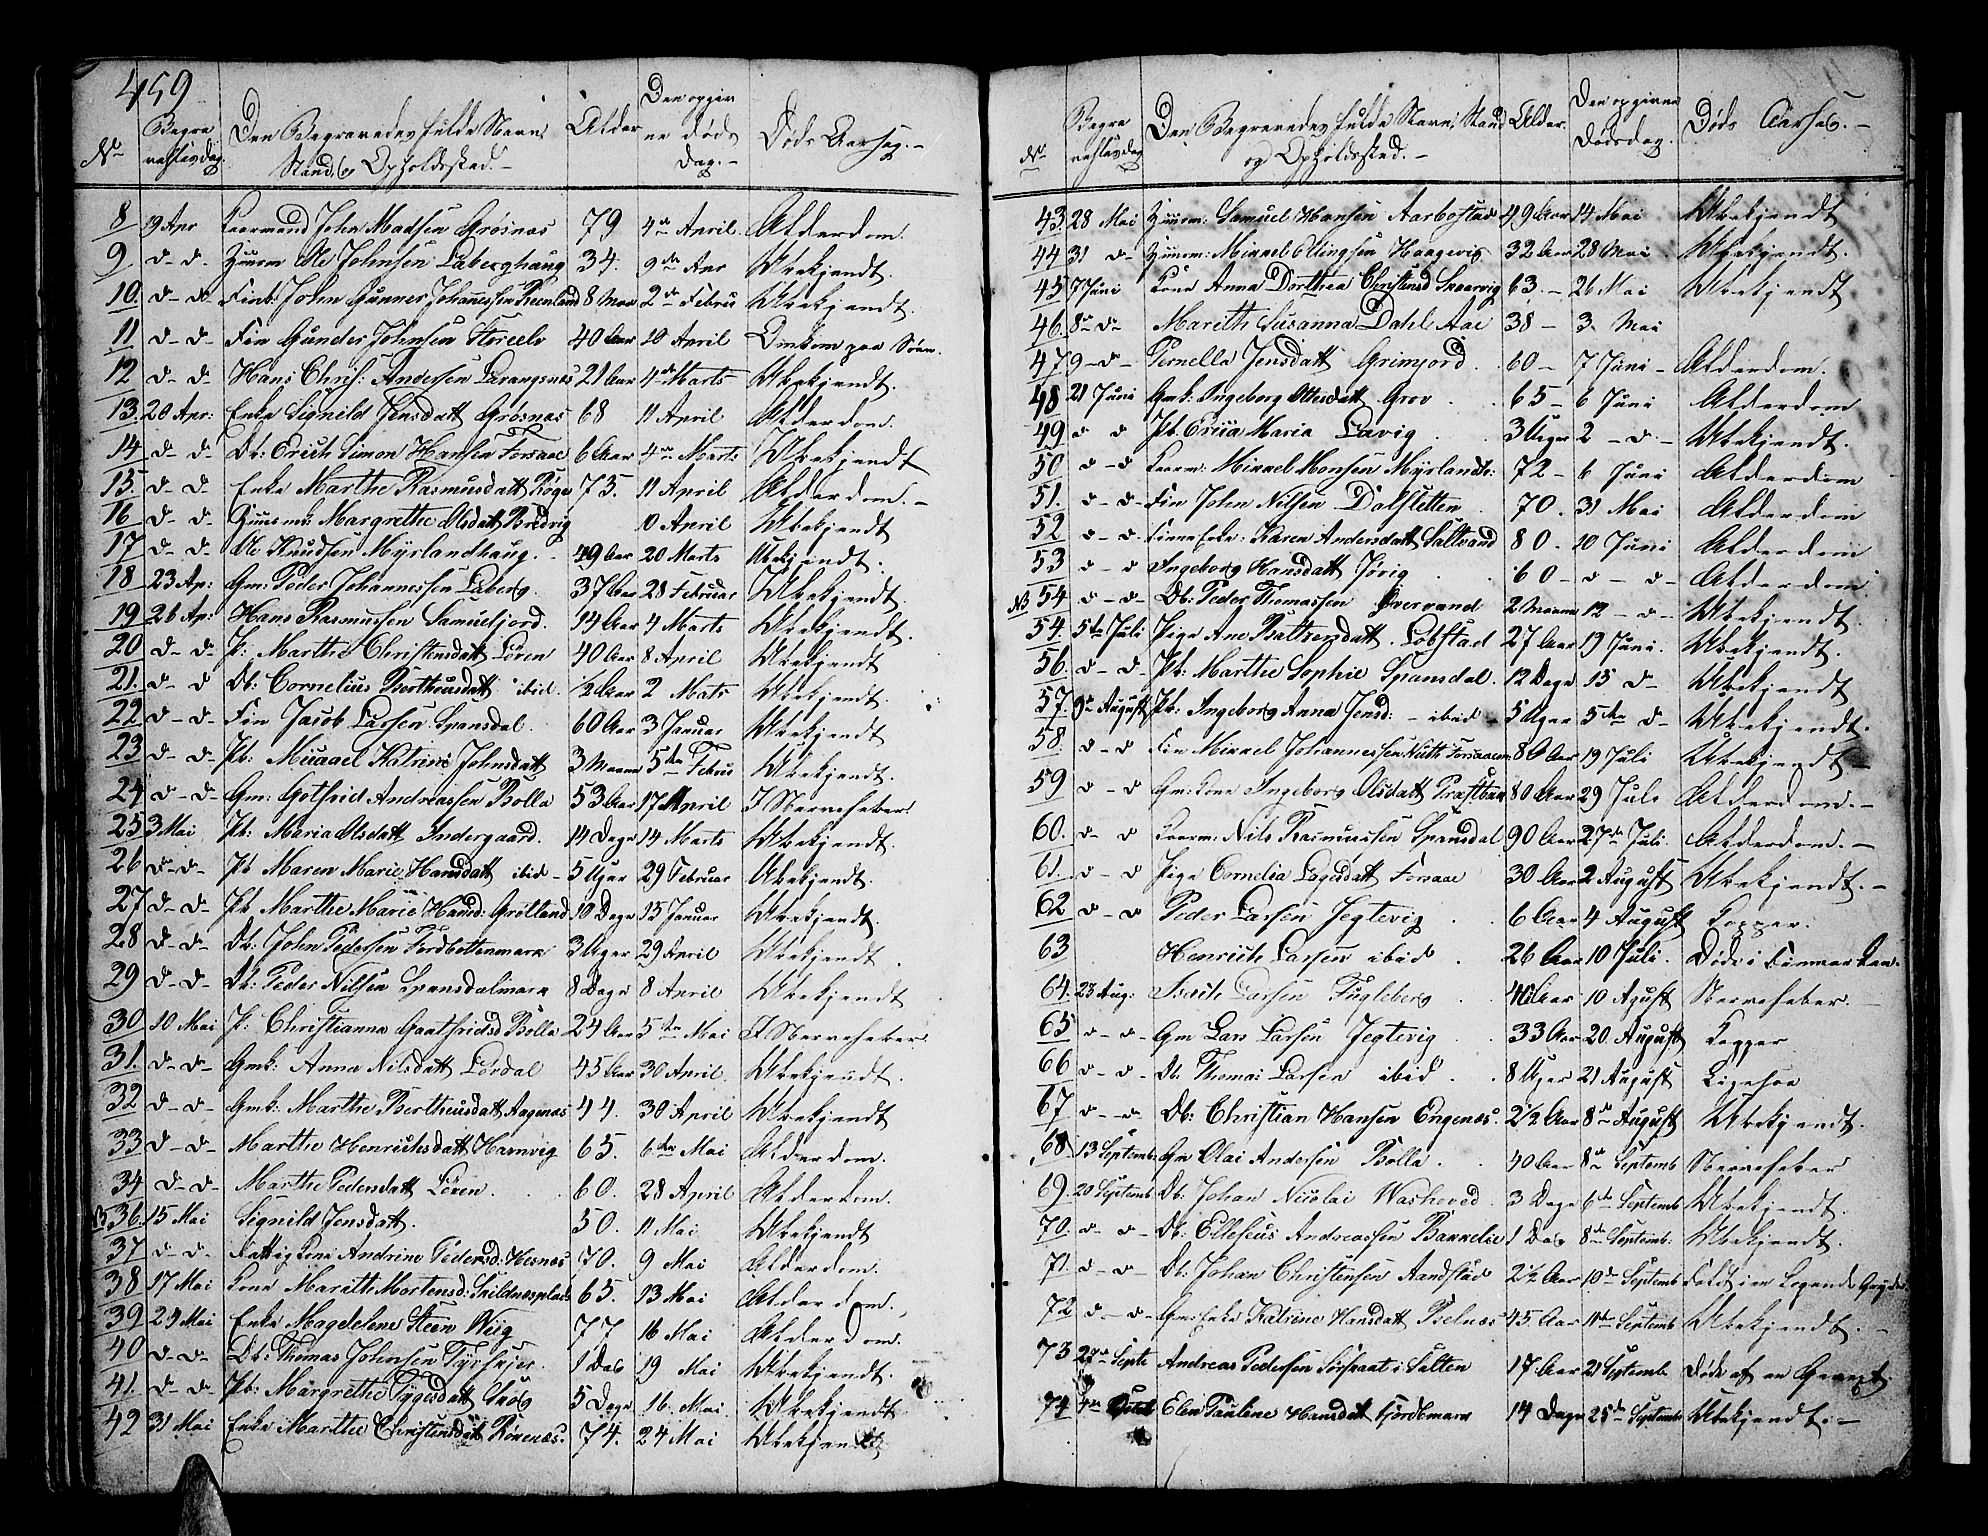 459
No Begravelsesdag. Den Begravedes fulde Navn, Stand og Opholdssted.- Alder Den opgivne Døds Dag.- Døds Aarsag.-
8 19 Apr Kaarmand John Madsen Grøsnæs 79 4de April. Alderdom.
9 d- d. Huusm Ole Johnsen Laberghaug 34. 9de Apr Ubekjendt.
10. d- d. Finb: John Gunner Johannessen Reenland 8 Maan 2de Febru Ubekjendt.
11 d- d- Fin Gunder Johnsen Storelv 40 Aar 10 April Omkom paa Søen.
12 d- d- Hans Chris: Andersen Levangsnæs 21 Aar 4de Marts Ubekjendt.
13. 20 Apr: Enke Signild Jensdatt Grøsnæs 68 11 April Alderdom.
14 d- d- Db: Erich Simon Hansen Forsaae 6 Aar 4de Marts Ubekjendt
15. d- d- Enke Marthe Rasmusdatt 75. 11 April Alderdom.-
16 d- d- Margrethe Olsdatt Bredvig 10 April Ubekjendt
17 d- d- Ole Knudsen Myrlandhaug.- 49 Aar 20 Marts Ubekjendt.
18- 23 Ap: Gm: Peder Johannessen Laberg. 37 Aar 28 Februar Ubekjendt.
19 26 Ap: Hans Rasmussen Samueljord. 14 Aar 4 Marts Ubekjendt.
20 d- d- P: Marthe Christensdatt Løren 40 Aar 8 April Ubekjendt
21. d- d Db: Cornelius Bertheusdatt ibid. 1/2 Aar 2 Mats Ubekjendt.
22 d- d- Fin Jacob Larsen Spansdal. 60 Aar 3 Januar Ubekjendt
23 d- d- Pb: Katrine Johnsdatt 3 Maan 5te Febru Ubekjendt.
24 d- d- Gm: Gotfrid Andreassen Bolla 53 Aar 17 April I Nervefeber.
25 3 Mai Pb: Maria Olsdatt Indergaard. 14 Dage 14 Marts Ubekjendt.
26 d- d- Pb Maren Marie Hansdatt ibid- 5 Uger 29 Februar Ubekjendt.
27 d- d- Pb Marthe Marie Hansd: Grøtland 10 Dage 15 Januar Ubekjendt
28 d- d- Db: John Pedersen Fordbottenmark 3 Uger 29 April Ubekjendt.
29 d- d- Db: Peder Nilsen Spansdalmark 8 Dage 8 April Ubekjendt
30 10 Mai P: Christianna Gaatfridsd Bolla 24 Aar 5te Mai I Nervefeber
31. d- d- Gmk: Anna Nilsdatt Løvdal 45 Aar 30 April. Ubekjendt.
32 d- d- Gmk: Marthe Bertheusdatt Aagenæs 44. 30 April Ubekjendt
33 d- d- Marthe Henrichsdatt Hamnvig 65. 6te Mai Alderdom.
34 d- d- Marthe Pedersdatt Løren. 60. 28 April Alderdom.
NB 36. 15 Mai Signild Jensdatt. 50. 11 Mai Ubekjendt
37 d- d- Fattig Kone Andrine Pedersd: Hesnæs 70. 9 Mai Alderdom.
38 17 Mai Kone Marith Mortensd: 65. 13 Mai Alderdom.
39 29 Mai Enke Magdelene Steen Wiig 77 16 Mai Alderdom.
40 d- d- Db: Thomas Johnsen 1 Dag 19 Mai Ubekjendt.
41. d- d- Pb: Margrethe 5 Dage 16. Mai Ubekjendt
42 31 Mai Enke Marthe Christensdatt Rønenæs. 74. 24 Mai Ubekjendt
No Begravelsesdag Den Begravedes fulde Navn, Stand og Opholdssted.- Alder. Den opgivne Dødsdag. Døds Aarsag.-
43. 28 Mai Huusm: Samuel Hansen Aarbostad 49 Aar 14 Mai Ubekjendt
44 31 d- Huusm: Mikkel Ellingsen Haagevig 32 Aar 28 Mai Ubekjendt.
45 7 Juni Kone Anna Dorthea Christensd 63.- 26 Mai Ubekjendt
46. 8de d- Mareth Susanna Dahl Aae 38- 3. Mai
47 9- d- Pernella Jensdatt Grimjord. 60- 7 Juni- Alderdom.
48 21 Juni Gmk: Ingeborg Ottesdatt Grov. 65- 6 Juni Alderdom
49 d d Pb Ericia Maria Lavig. 3 Uger 2- d- Ubekjendt.
50 d- d Kaarm: Mikkel Monsen Myrlands: 72- 6 Juni Alderdom
51. d- d- Fin John Nilsen Dalsletten 70. 31 Mai Alderdom
52 d- d. Finne Enke: Karen Andersdatt Saltvand 80. 10 Juni Alderdom
53 d- d Ingeborg Hansdatt Jørig 60- d- d- Alderdom
NB 54 d- d- Db: Peder Thomassen 2 Maaned 12- d- Ubekjendt.
54. 5te Juli Pige Ane Baltzersdatt. Lobstad 27 Aar 19 Juni. Ubekjendt.
56. d- d- Pb: Marthe Sophie Spansdal. 12 Dage 15 d- Ubekjendt
57. 9de August Pb: Ingeborg Anna Jensd:- ibid 5 Uger 5te d- Ubekjendt.
58. d- d Fin Mikkel Johannessen 80 Aar 19 Juli Ubekjendt-
59 d- d Gm: Kone Ingeborg Olsdatt 80 Aar 29 Juli Alderdom.-
60. d- d Kaarm: Nils Rasmussen Spansdal 90 Aar 27de Juli. Alderdom.-
61. d- d Pige Cornelia Forsaae 30 Aar 2 August Ubekjendt.-
62 d- d Peder Larsen Jegtevig. 6 Aar 4 August Kopper.
63 Henrich Larsen ibid. 26 Aar 10 Juli. Døde i Finmarken.
64. 23 Aug: Isach Larsen Fugleberg. 40 Aar 10 Agust Nervefeber.-
65 d- d- Gm Lars Larsen Jegtevig. 33 Aar 20. August Kopper
66 d- d- Db Thomas Larsen ibid. 8 Uger 21 August Ligesaa
67 d- d- Db: Christian Hansen Engenæs. 2 1/2 Aar 8de August Ubekjendt.
68. 13 Septemb. Gm Olai Andersen Bolla. 40 Aar 8de Septemb Nervefeber
69. 20 Septemb Db. Johan Nicolai Washoved. 3 Dage 6te Septemb Ubekjendt.
70. d- d- Db: Elleseus Andreassen Bakkelie 1 Dag 8de Septemb: Ubekjendt.
71. d- d- Db: Johan Christensen Aandstad 2 1/2 Aar 10de Septemb Faldt i en kogende Gryde.
72 d- d- Gm: Enke Katrine Hansdatt 45 Aar 11te Septemb Ubekjendt.-
73 27de Septe Andreas Pedersen i Salten 17 Aar 21 Septembr Døde af en
74 4de Octob Elen Pauline Hansdatt Fjordbmark 14 Dage 25de Septemb Ubekjendt.-